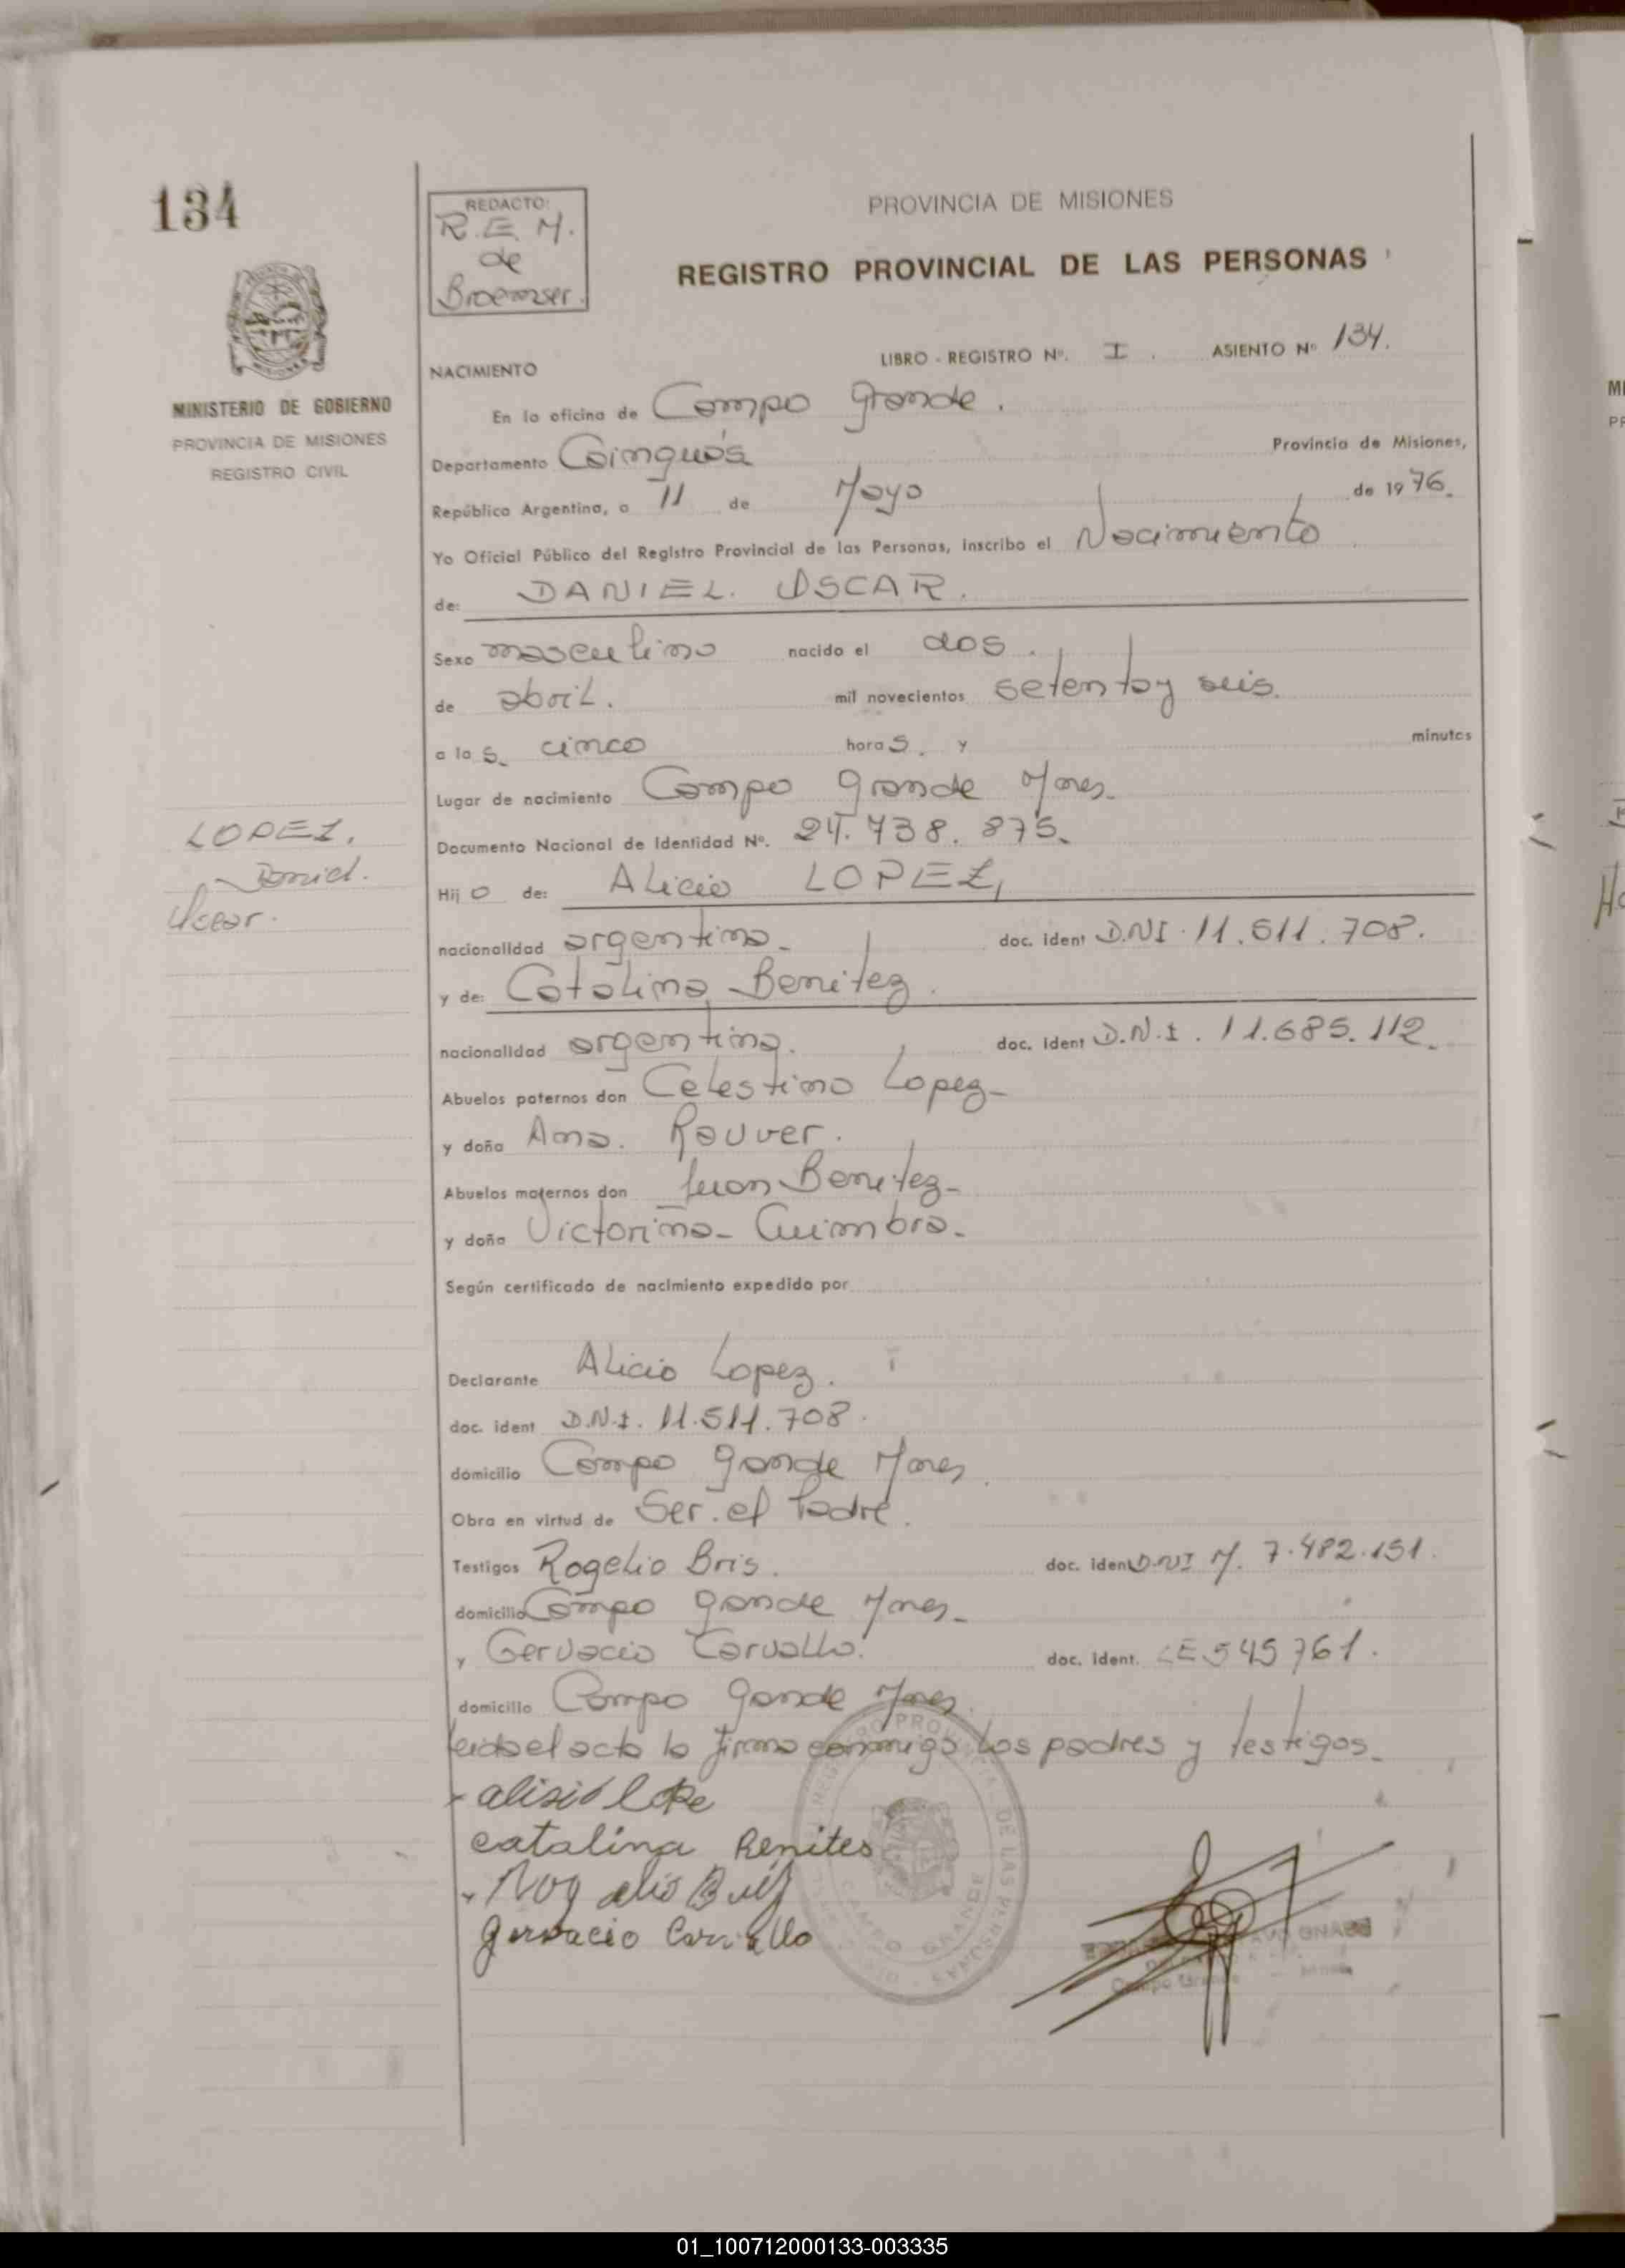 134
REDACTO:
R.E.M.
de
Broemser.
PROVINCIA DE MISIONES
REGISTRO PROVINCIAL DE LAS PERSONAS
MINISTERIO DE GOBIERNO
PROVINCIA DE MISIONES
REGISTRO CIVIL
NACIMIENTO
LIBRO - REGISTRO Nº. I. ASIENTO Nº 134.
En la oficina de Campo Grande.
Departamento Cainguás Provincia de Misiones,
República Argentina, a 11 de Mayo de 1976.
Yo Oficial Público del Registro Provincial de las Personas, inscribo el Nacimiento
de: DANIEL. OSCAR.
Sexo masculino nacido el dos.
de abril. mil novecientos setenta y seis.
a las cinco horas. y minutos
Lugar de nacimiento Campo Grande Mnes.
Documento Nacional de Identidad Nº. 24.738.875.
LOPEZ,
Daniel.
Oscar.
Hijo de: Alicio LOPEZ,
nacionalidad argentina. doc. ident D.N.I. 11.511.708.
y de: Catalina Benitez.
nacionalidad argentina. doc. ident D.N.I. 11.685.112.
Abuelos paternos don Celestino Lopez-
y doña Ana. Rauver.
Abuelos maternos don Juan Benitez-
y doña Victorina- Cuimbra-
Según certificado de nacimiento expedido por
Declarante Alicio Lopez.
doc. ident D.N.I. 11.511.708.
domicilio Campo Grande Mnes.
Obra en virtud de Ser. el Padre.
Testigos Rogelio Bris. doc. ident D.N.I M. 7.482.151.
domicilio Campo Grande Mnes-
y Gervacio Carvallo. doc. ident. LE 545761.
domicilio Campo Grande Mnes.
leida el acta la firma conmigo los padres y testigos.
alisio lope
catalina Benites
gervacio Carvallo
CAMPO GRANDE
01_100712000133-003335